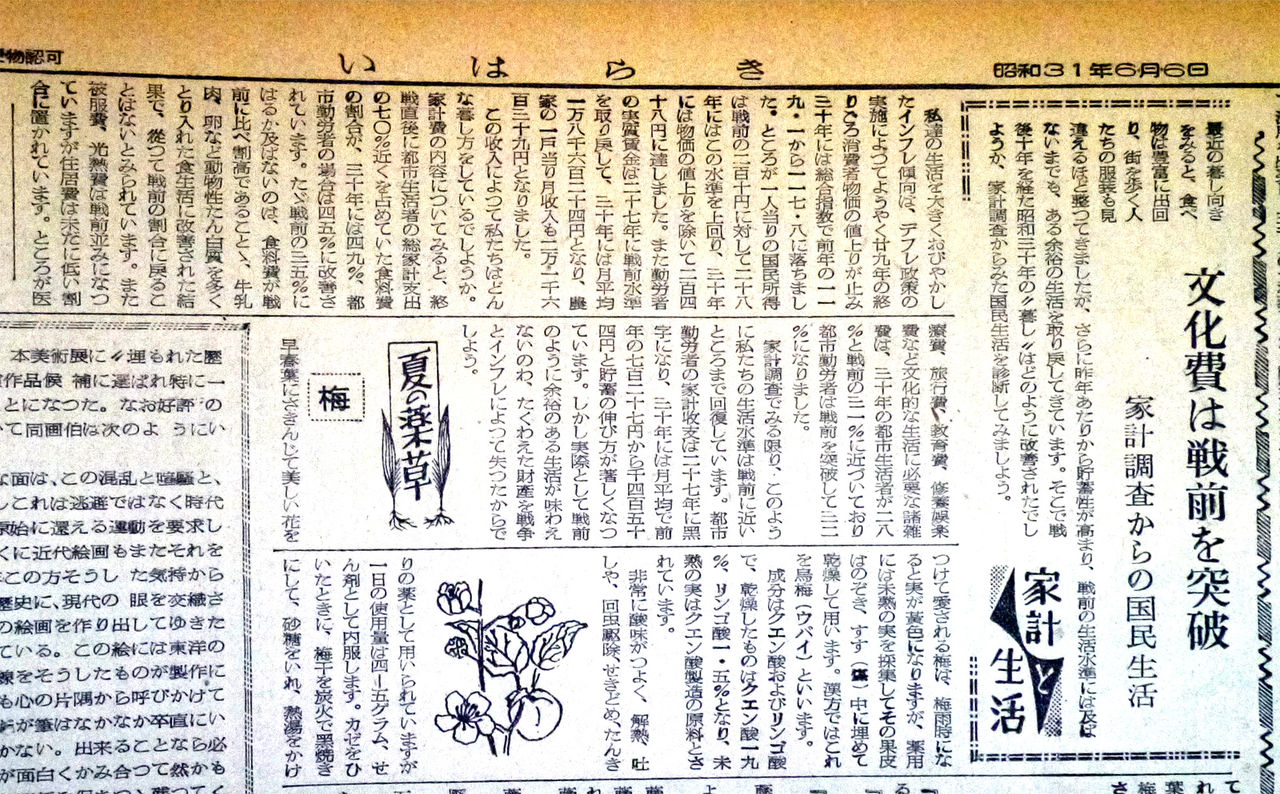 物認可
いはらき
昭和31年6月6日
文化費は戦前を突破
家計調査からの国民生活
家計と生活
最近の暮し向き
をみると、食べ
物は豊富に出回
り、街を歩く人
たちの服装も見
違えるほど整つてきましたが、さらに昨年あたりから貯蓄性が高まり、戦前の生活水準には及ば
ないまでも、ある余裕の生活を取り戻してきています。そこで戦
後十年を経た昭和三十年の〃暮し〃はどのように改善されたでし
ようか、家計調査からみた国民生活を診断してみましよう。
私達の生活を大きくおびやかし
たインフレ傾向は、デフレ政策の
実施によつてようやく廿九年の終
りごろ消費者物価の値上りが止み
三十年には総合指数で前年の一一
九・一から一一七・八に落ちまし
た。ところが一人当りの国民所得
は戦前の二百十円に対して二十八
年にはこの水準を上回り、三十年
には物価の値上りを除いて二百四
十八円に達しました。また勤労者
の実質賃金は二十七年に戦前水準
を取り戻して、三十年には月平均
一万八千六百二十四円となり、農
家の一戸当り月収入も二万一千六
百三十九円となりました。
この収入によつて私たちはどん
な暮し方をしているでしようか。
家計費の内容についてみると、終
戦直後に都市生活者の総家計支出
の七〇％近くを占めていた食料費
の割合が、三十年には四九％、都
市勤労者の場合は四五％に改善さ
れています。たゞ戦前の三五％に
はるか及ばないのは、食料費が戦
前に比べ割高であること、牛乳
肉、卵など動物性たん白質を多く
とり入れた食生活に改善された結
果で、從つて戦前の割合に戻るこ
とはないとみられています。また
被服費、光熱費は戦前並みになつ
ていますが住居費は未だに低い割
合に置かれています。ところが医
療費、旅行費、教育費、修養娯楽
費など文化的な生活に必要な諸雑
費は、三十年の都市生活者が二八
％と戦前の三一％に近づいており
都市勤労者は戦前を突破して三二
％になりました。
家計調査でみる限り、このよう
に私たちの生活水準は戦前に近い
ところまで回復しています。都市
勤労者の家計収支は二十七年に黒
字になり、三十年には月平均で前
年の七百二十七円から千四百五十
四円と貯蓄の伸び方が著しくなつ
ています。しかし実際として戦前
のように余裕のある生活が味わえ
ないのわ、たくわえた財産を戦争
とインフレによつて失つたからで
しよう。
夏の薬草
梅
早春葉にさきんじて美しい花を
つけて愛される梅は、梅雨時にな
ると実が黄色になりますが、薬用
には未熟の実を採集してその果皮
はのぞき、すす（煤）中に埋めて
乾燥して用います。漢方ではこれ
を烏梅（ウバイ）といいます。
成分はクエン酸およびリンゴ酸
で、乾燥したものはクエン酸一九
％、リンゴ酸一・五％となり、未
熟の実はクエン酸製造の原料とさ
れています。
非常に酸味がつよく、解熱、吐
しや、回虫駆除、せきどめ、たんき
りの薬として用いられていますが
一日の使用量は四―五グラム、せ
ん剤として内服します。カゼをひ
いたときに、梅干を炭火で黒焼き
にして、砂糖をいれ、熱湯をかけ
本美術展に〃埋もれた歴
作品候 補に選ばれ特に一
とになつた。なお好評 の
て同画伯は次のよ うにい
な面は、この混乱と喧騒と、
これは逃避ではなく時代
原始に還える運動を要求し
くに近代絵画もまたそれを
この方そうし た気持から
歴史に、現代の 眼を交織さ
の絵画を作り出してゆきた
ている。この絵には東洋の
線をそうしたものが製作に
も心の片隅から呼びかけて
が筆はなかなか卒直にい
かない。出来ることなら必
が面白くかみ合つて然かも